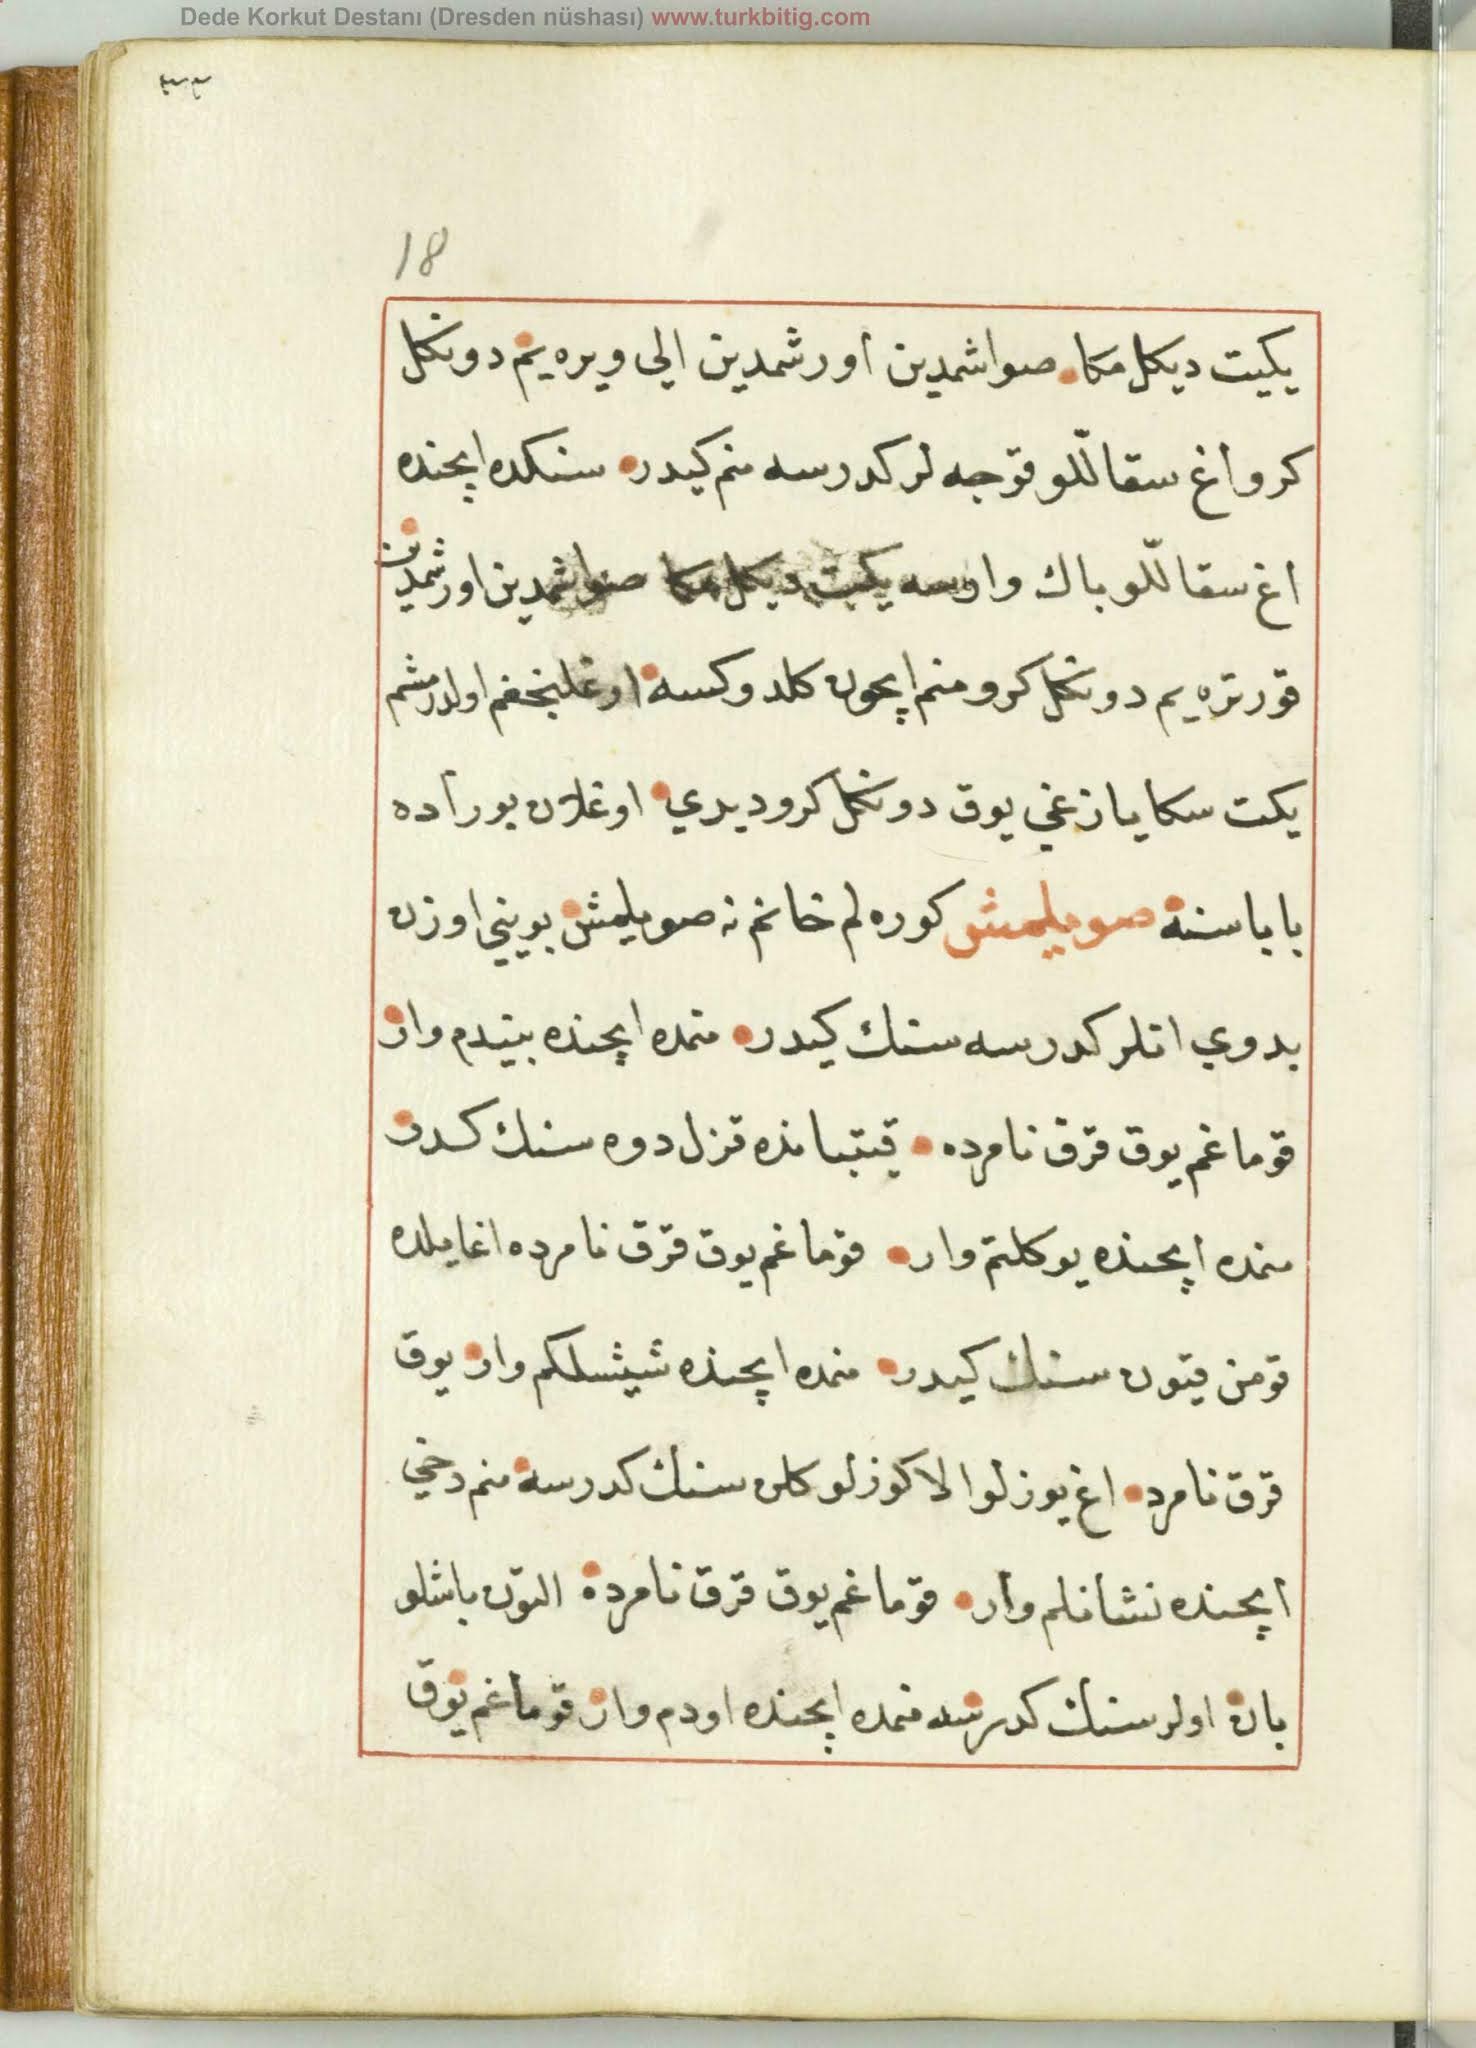 Dede Korkut Destanı (Dresden nüshası) www.turkbitig.com
٣٣
18
يكيت ديكل مكا صواشمدين اورشمدين الى ويره يم دونكل
كرو اغ سقاللّلو قوجه لر كدرسه منم كيدر سنكده ايچنده
اغ سقاللّلو باك وارسه يكيت ديكل مكا صواشمدين اورشمدين
قورتره يم دونكل كرو منم ايچون كلدوكسه اوغلنجغم اولدرمشم
يكت سكا يازغى يوق دونكل كرو ديدي اوغلان بوراده
باباسنه صويلمش كوره لم خانم نه صويلمش بوينى اوزن
بدوي اتلر كدرسه سنك كيدر منمده ايچنده بيندم وار
قوماغم يوق قرق نامرده قيتبانده قزل دوه سنك كدر
منمده ايچنده يوكلتم وار قوماغم يوق قرق نامرده اغايلده
قومن قيون سنك كيدر منمده ايچنده شيشلكم وار يوق
قرق نامرد اغ يوزلو الا كوزلو كلن سنك كدرسه منم دخي
ايچنده نشانلم وار قوماغم يوق قرق نامرده التون باشلو
بان اولر سنك كدرسه منمده ايچنده اودم وار قوماغم يوق